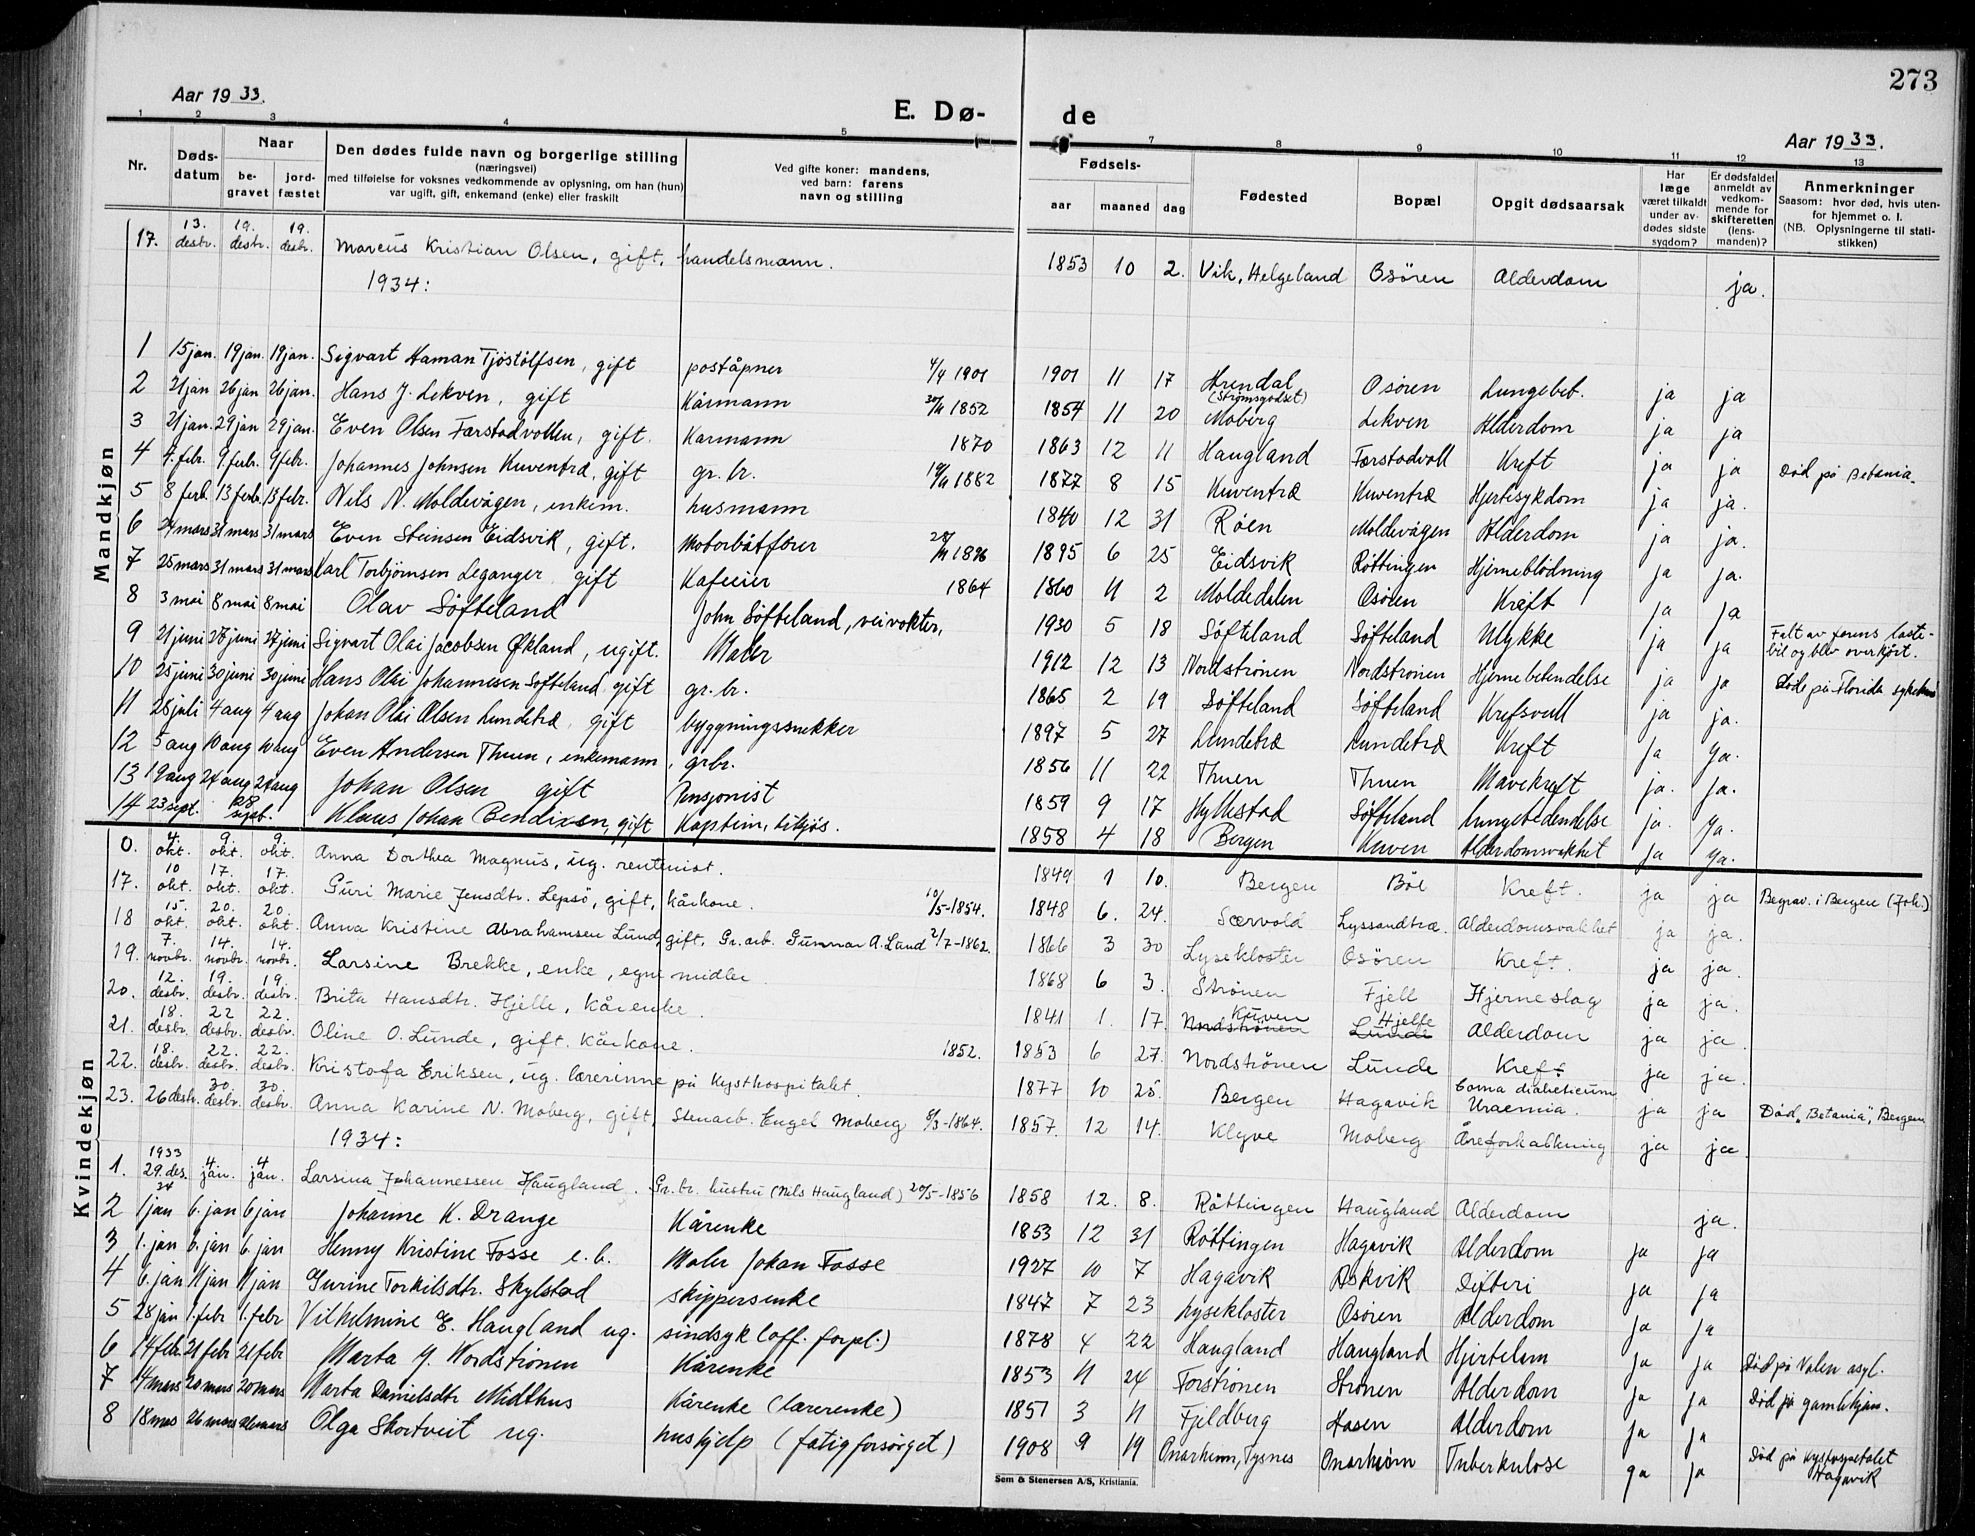 273
Aar 1933.
E. Dø-de
Aar 1933.
1 2 3 4 5 7 8 9 10 11 12 13
Nr. Døds-datum Naar be-gravet jord-fæstet
Den dødes fulde navn og borgerlige stilling
(næringsvei)
med tilføielse for voksnes vedkommende av oplysning, om han (hun)
var ugift, gift, enkemand (enke) eller fraskilt
Ved gifte koner: mandens,
ved barn: farens
navn og stilling
Fødsels- aar maaned dag
Fødested Bopæl Opgit dødsaarsak
Har læge været tilkaldt under av-dødes sidste sygdom?
Er dødsfaldet anmeldt av vedkom-mende for skifteretten (lens-manden)?
Anmerkninger
Saasom: hvor død, hvis uten-for hjemmet o. l.
(NB. Oplysningerne til stati-stikken)
Mandkjøn
17. 13. desbr. 19. desbr. 19. desbr. Marcus Kristian Olsen, gift, handelsmann. 1853 10 2. Vik, Helgeland Osøren Alderdom ja.
1934:
1 15 jan. 19 jan. 19 jan. Sigvart Haman Tjöstölfsen, gift poståpner 4/4 1901 1901 11 17 Arendal (Strømsgodset) Osøren Lungebet. ja ja
2 21 jan 26 jan 26 jan. Hans J. Lekven, gift Kårmann 30/11 1852 1854 11 20 Moberg Lekven Alderdom ja ja
3 21 jan. 29 jan 29 jan. Even Olsen Færstadvollen, gift. Karmann 1870 1863 12 11 Haugland Færstadvoll Kreft ja ja Död på Betania.
4 4. febr. 9. febr. 9 febr. Johannes Johnsen Kuventræ, gift gr. br. 1882 1877 8 15 Kuventræ Kuventræ Hjertesykdom ja ja.
5 8 feb. 13 febr. 13 febr. Nils N. Moldevågen, enkem. husmann 1840 12 31 Røen Moldevågen Alderdom ja ja.
6 24 mars 31 mars 31 mars Even Steinsen Eidsvik, gift. Motorbåtfører 1896 1895 6 25 Eidsvik Røttingen Hjerneblödning ja ja.
7 25 mars 31 mars 31 mars Karl Torbjørnsen Leganger gift Kafeeier 1864 1860 11 2 Moldedalen Osøren Kreft ja ja
8 3 mai 8 mai 8 mai Olav Søfteland John Söfteland, veivokter, 1930 5 18 Söfteland Söfteland Ulykke ja ja Falt av farens laste-bil og blev overkjört.
9 21 juni 27 juni 27 juni Sigvart Olai Jacobsen Økland, ugift. Maler 1912 12 13 Nordstrønen Nordströnen Hjernebetendelse ja ja Döde på Florida
10 25 juni 30 juni 30 juni Hans Olai Johannesen Söfteland gift gr. br. 1865 2 19 Söfteland Söfteland ja ja.
11 28 juli 4 aug 4 aug Johan Olai Olsen Lundetræ, gift byggningssnekker 1897 5 27 Lundetræ Lundetræ Kreft ja ja.
12 5 aug 10 aug 10 aug Even Andersen Thuen, enkemann, grbr. 1856 11 22 Thuen Thuen Mavekreft ja. ja.
13 19 aug 24 aug 24 aug Johan Olsen gift Pensjonist 1859 9 17 Hylkestad Söfteland Lungebetendelse ja. ja.
14 23 sept. 28 sept. Klaus Johan Bendixen, gift Kaptein, tilsjøs. 1858 4 18 Bergen Kuven Alderdomsvakhet ja ja.
Kvindekjøn
0. 4 okt. 9 okt. 9. okt. Anna Dorthea Magnus, ug. rentenist. 1849 1 10. Bergen Böe Kreft. ja ja Begrav. i Bergen
17. 10 okt. 17. okt. 17. okt. Guri Marie Jensdtr. Lepsö, gift, kårkone. 10/5-1854. 1848 6. 24. Særvold Lyssandtræ. Alderdomsvakhet ja ja.
18 15. okt 20. okt. 20. okt. Anna Kristine Abrahamsen Lund, gift, Gr. arb. Gunnar A. Lund 2/7-1862. 1866 3 30 Lysekloster Osören Kreft. ja ja.
19. 7. novbr. 14. novbr. 14. novbr. Larsine Brekke, enke, egne midler 1868 6 3. Strönen Fjell Hjerneslag ja ja.
20. 12. desbr. 19. desbr. 19 desbr. Brita Hansdtr. Hjelle, kårenke. 1841 1. 17. Nordströnen Kuven Lunde Hjelle Alderdom ja ja.
21. 18. desbr. 22 desbr. 22. desbr. Oline O. Lunde, gift. kårkone. 1852. 1853 6 27. Nordströnen Lunde Kreft ja ja.
22. 18. desbr. 22. desbr. 22. desbr. Kristofa Eriksen, ug. lærerinne på Kysthospitalet 1877 10 25. Bergen Hagavik Coma diabeticum Uraemia. ja ja Död, "Betania", Bergen
23. 26 desbr. 30. desbr. 30. desbr. Anna Karine N. Moberg, gift, Stenarb. Engel Moberg 8/3-1864. 1857. 12 14. Klyve Moberg Åreforkalkning ja ja.
1934:
1. 1933 29. des. 4 jan. 4 jan. Larsina Johannessen Haugland. Gr. br. hustru (Nils Haugland) 20/5-1856 1858 12. 8. Röttingen Haugland Alderdom ja.
2 34 1 jan 6. jan 6 jan Johanne K. Drange Kårenke 1853 12 31 Røttingen Hagavik Alderdom ja ja
3 1. jan 6. jan 6. jan Henny Kristine Fosse e. b. Maler Johan Fosse 1927 10 7 Hagavik Askvik Difteri ja ja
4 6. jan 11 jan 11 jan Gurine Torkilsdtr. Skylstad skippersenke 1847 7 23 Lysekloster Osøren Alderdom ja ja
5 28 jan 1. febr 1. febr Vilhelmine E. Haugland ug. sindsyk (off. forpl.) 1878 4 22 Haugland Haugland Hjertelam ja ja Död på Valen asyl.
6 14 febr. 21 febr 21 febr Marta J. Nordstrønen Kårenke 1853 11 24 Forströnen Strönen Alderdom ja ja Död på gamlehjem.
7 14 mars 20 mars 20 mars Marta Danielsdtr Midthus Kårenke (lærerenke) 1851 3 11 Fjeldberg Hasen Alderdom ja ja
8 18 mas 26 mars 26 mars Olga Skortveit ug. huskjelp (fatigforsørget) 1908 9 19 Onarheim, Tysnes Onarheim Tuberkulose ja ja Död på kysthospitalet Hagavik
Sem & Stenersen A/S, Kristiania.